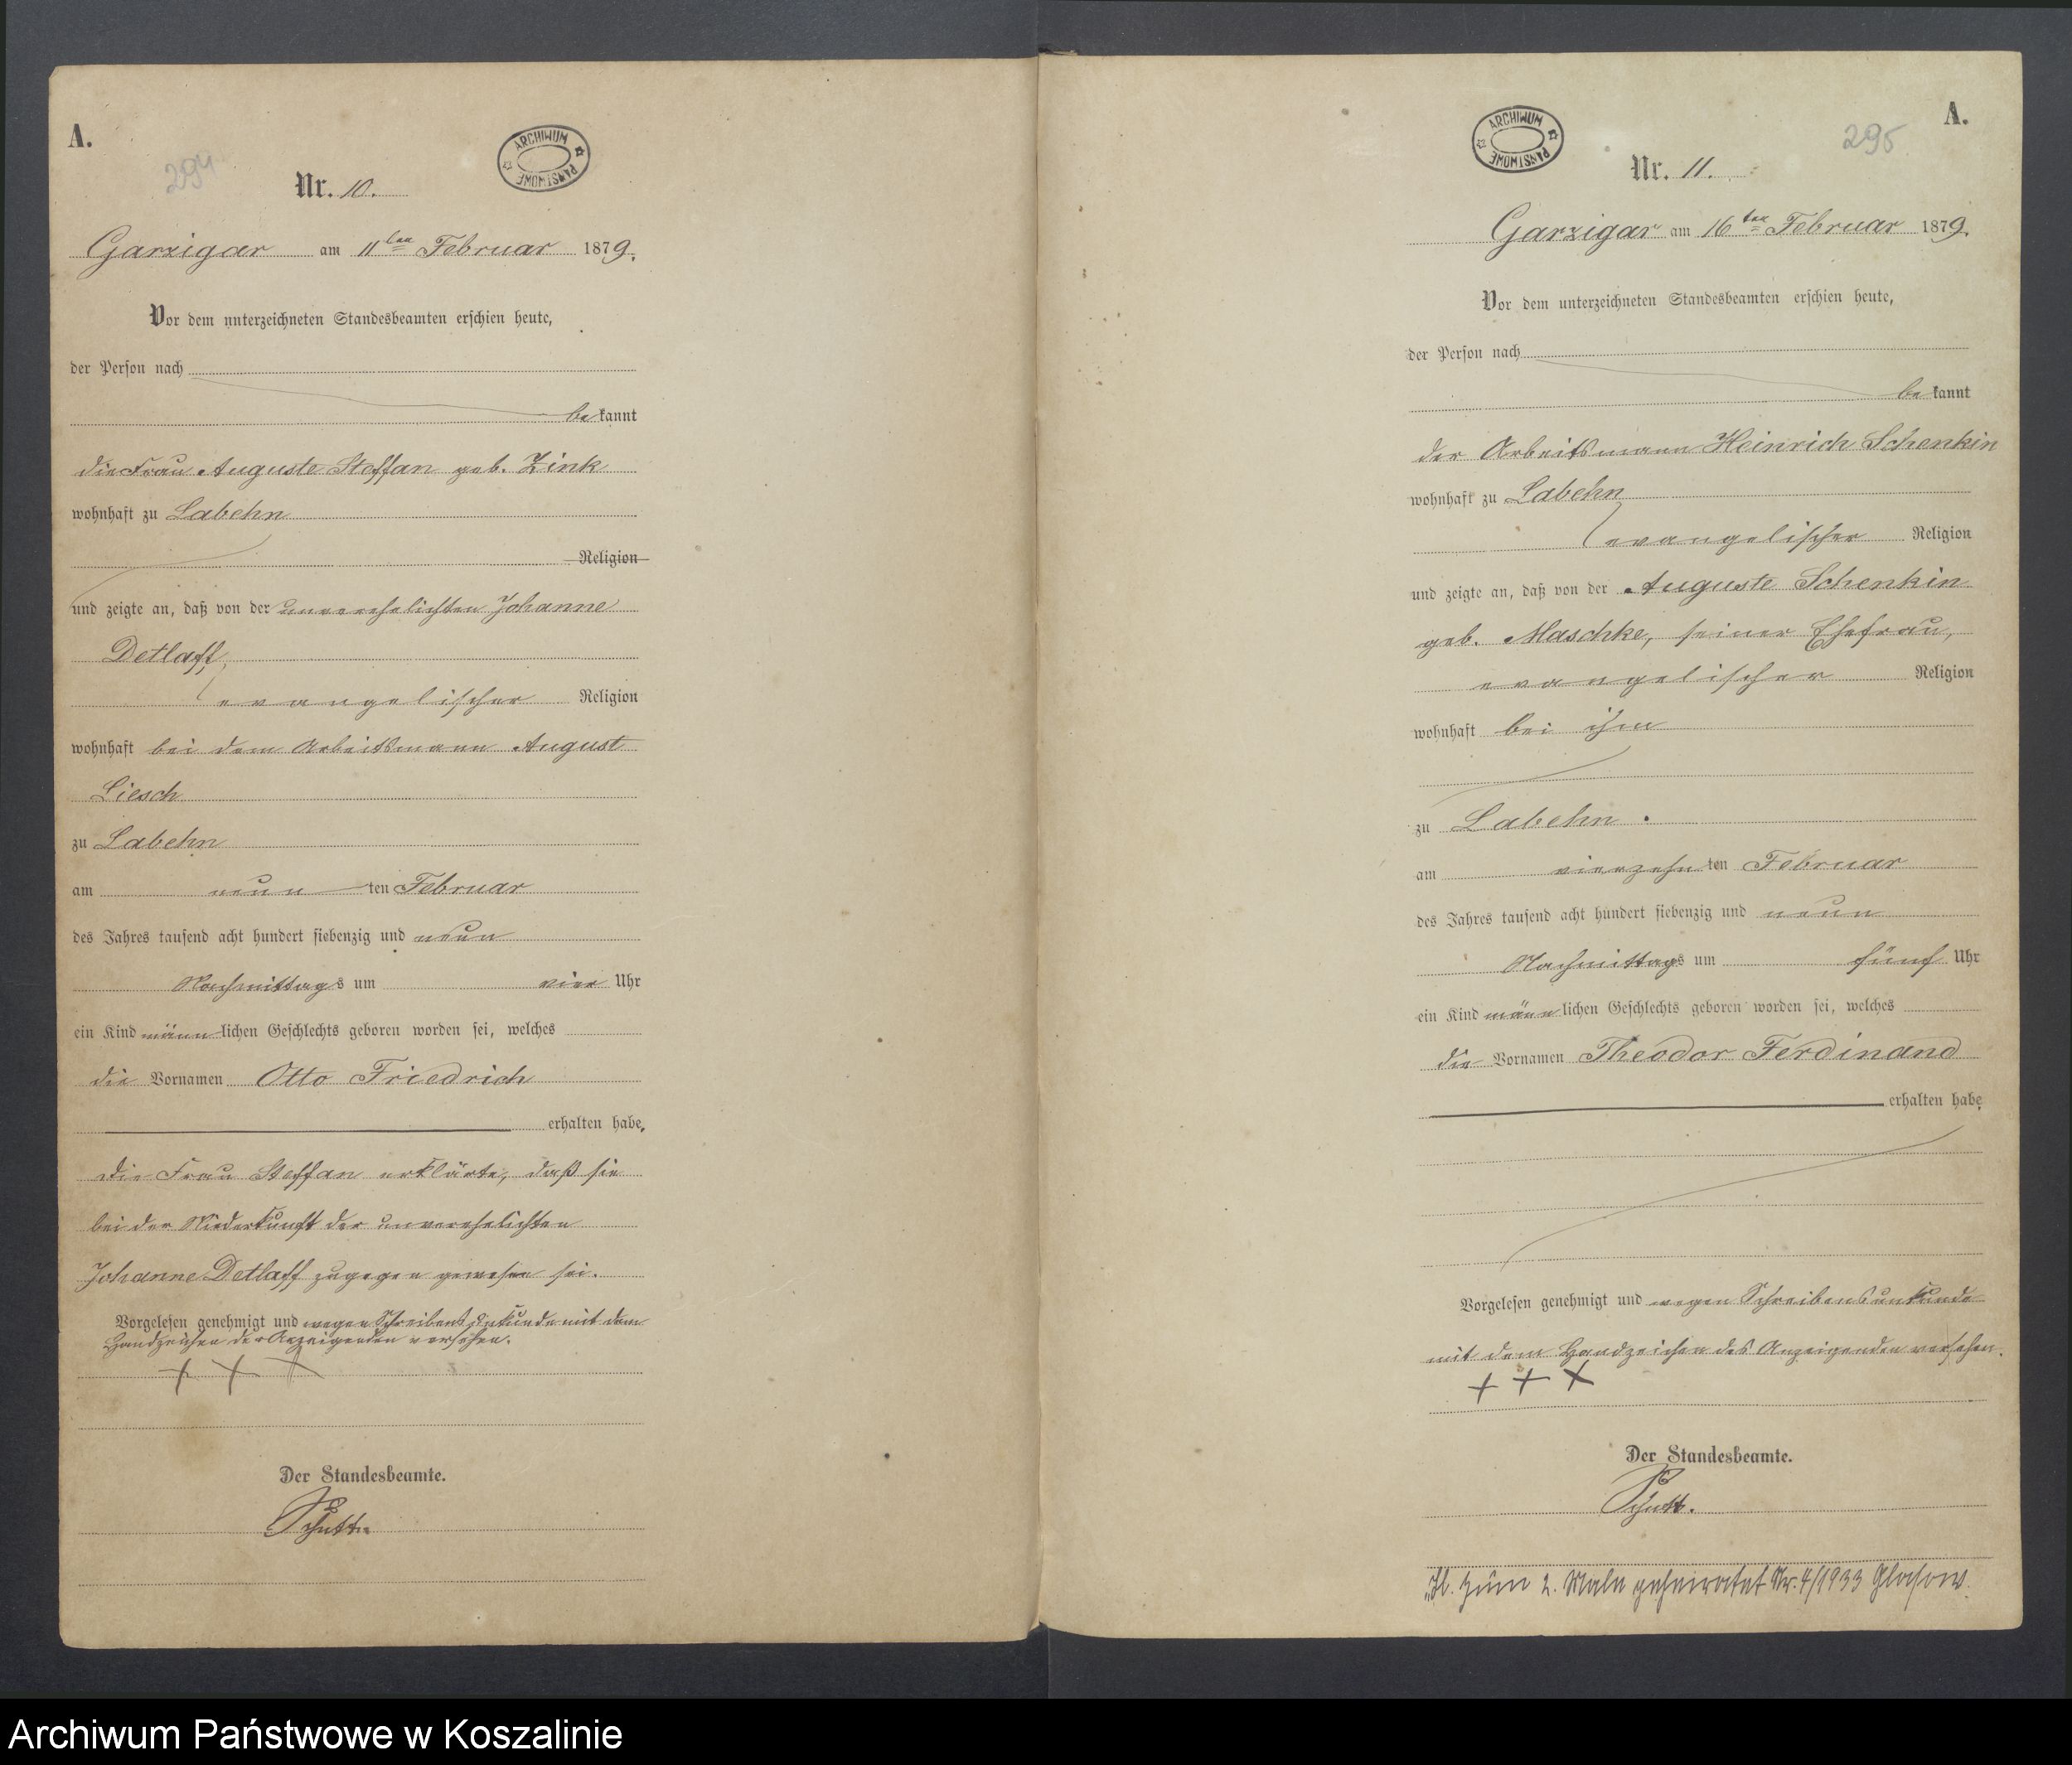 A.
294
ARCHIWUM PAŃSTWOWE
Nr. 10.
Garzigar am 11ten Februar 1879.
Vor dem unterzeichneten Standesbeamten erschien heute,
der Person nach
bekannt
die Frau Auguste Steffan geb. Zink
wohnhaft zu Labehn
Religion
und zeigte an, daß von der unverehelichten Johanne
Detlaff,
evangelischer Religion
wohnhaft bei dem Arbeitsmann August
Liesch
zu Labehn
am neunten Februar
des Jahres tausend acht hundert siebenzig und neun
Nachmittags um vier Uhr
ein Kind männlichen Geschlechts geboren worden sei, welches
die Vornamen Otto Friedrich
erhalten habe,
Die Frau Steffan erklärte, daß sie
bei der Niederkunft der unverehelichten
Johanne Detlaff zugegen gewesen sei.
Vorgelesen genehmigt und wegen Schreibensunkunde mit dem
Handzeichen der Anzeigenden versehen.
+ + +
Der Standesbeamte.
A.
295
ARCHIWUM PAŃSTWOWE
Nr. 11.
Garzigar am 16ten Februar 1879.
Vor dem unterzeichneten Standesbeamten erschien heute,
der Person nach
bekannt
der Arbeitsmann Heinrich Schenkin
wohnhaft zu Labehn
evangelischer Religion
und zeigte an, daß von der Auguste Schenkin
geb. Maschke, seiner Ehefrau,
evangelischer Religion
wohnhaft bei ihm
zu Labehn.
am vierzehnten Februar
des Jahres tausend acht hundert siebenzig und neun
Nachmittags um fünf Uhr
ein Kind männlichen Geschlechts geboren worden sei, welches
die Vornamen Theodor Ferdinand
erhalten habe,
Vorgelesen genehmigt und wegen Schreibensunkunde
mit dem Handzeichen des Anzeigenden versehen.
+ + +
Der Standesbeamte.
zum 2. Male geheiratet Nr. 4/1933 Glasow.
Archiwum Państwowe w Koszalinie